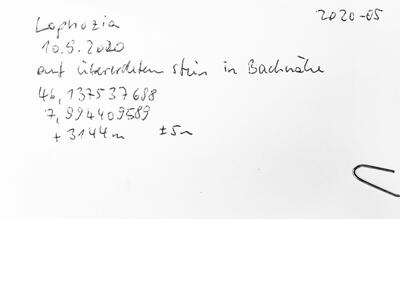 2020-05
Lophozia
10.9.2020
auf übererdetem Stein in Bachnähe
46,137537698
7,994409589
+3144m ±5m